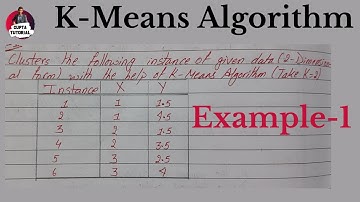 GUPTA
TUTORIAL
K-Means Algorithm
Clusters the following instance of given data (2-Dimension
al form) with the help of K-Means Algorithm (Take K=2)
Instance X Y
1 1 1.5
2 1 4.5
3 2 1.5
4 2 3.5
5 3 2.5
6 3 4
Example-1